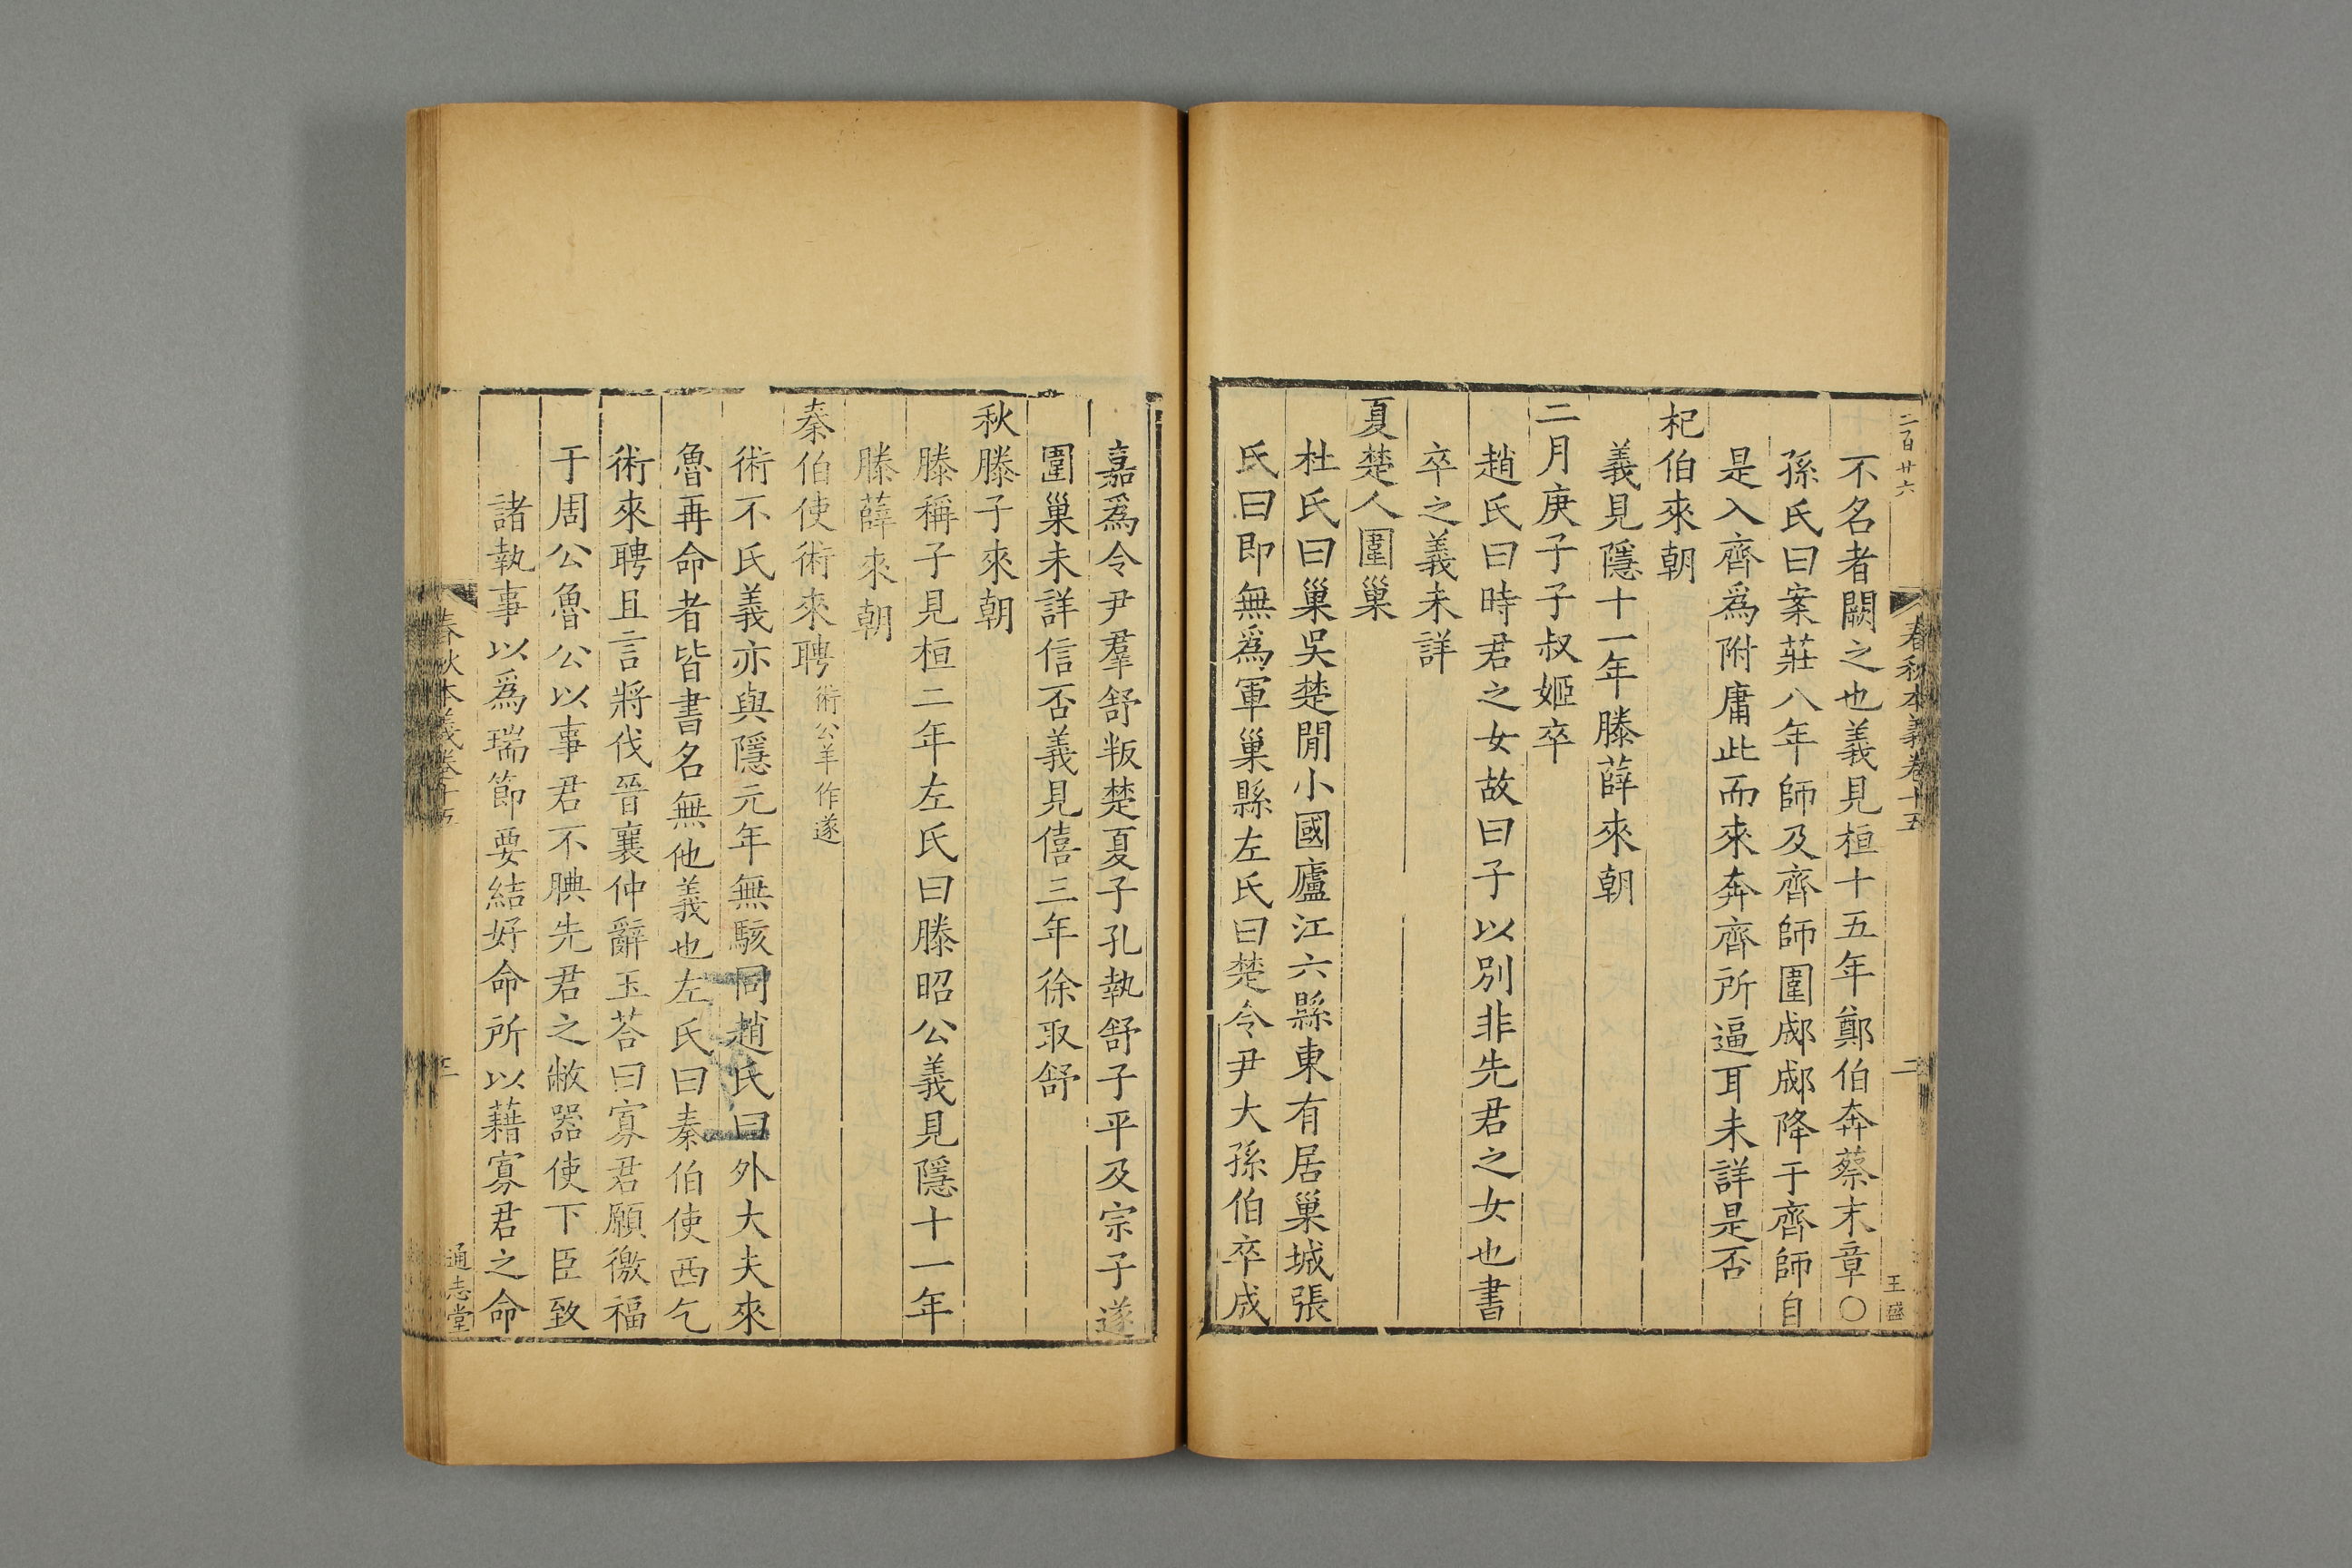 二百廿六
春秋本義卷十五
二
王盛
不名者闕之也義見桓十五年鄭伯奔蔡末章〇
孫氏曰案莊八年師及齊師圍郕郕降于齊師自
是入齊爲附庸此而來奔齊所逼耳未詳是否
杞伯來朝
義見隱十一年滕薛來朝
二月庚子子叔姬卒
趙氏曰時君之女故曰子以別非先君之女也書
卒之義未詳
夏楚人圍巢
杜氏曰巢吳楚閒小國廬江六縣東有居巢城張
氏曰即無爲軍巢縣左氏曰楚令尹大孫伯卒成
嘉爲令尹羣舒叛楚夏子孔執舒子平及宗子遂
圍巢未詳信否義見僖三年徐取舒
秋滕子來朝
滕稱子見桓二年左氏曰滕昭公義見隱十一年
滕薛來朝
秦伯使術來聘術公羊作遂
術不氏義亦與隱元年無駭同趙氏曰外大夫來
魯再命者皆書名無他義也左氏曰秦伯使西乞
術來聘且言將伐晉襄仲辭玉荅曰寡君願徼福
于周公魯公以事君不腆先君之敝器使下臣致
諸執事以爲瑞節要結好命所以藉寡君之命
春秋本義卷十五
通志堂